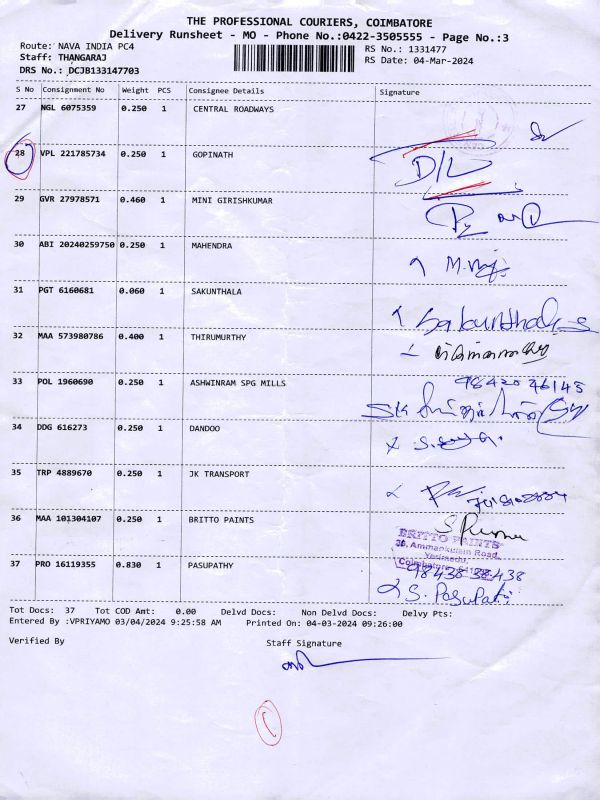 THE PROFESSIONAL COURIERS, COIMBATORE
Delivery Runsheet - MO - Phone No.:0422-3505555 - Page No.:3
Route: NAVA INDIA PC4 RS No.: 1331477
Staff: THANGARAJ RS Date: 04-Mar-2024
DRS No.: DCJB133147703
S No Consignment No Weight PCS Consignee Details Signature
27 NGL 6075359 0.250 1 CENTRAL ROADWAYS
28 VPL 221785734 0.250 1 GOPINATH D/L
29 GVR 27978571 0.460 1 MINI GIRISHKUMAR
30 ABI 20240259750 0.250 1 MAHENDRA
31 PGT 6160681 0.060 1 SAKUNTHALA Sakunthala
32 MAA 573980786 0.400 1 THIRUMURTHY
33 POL 1960690 0.250 1 ASHWINRAM SPG MILLS 98420 46145
34 DDG 616273 0.250 1 DANDOO
35 TRP 4889670 0.250 1 JK TRANSPORT
36 MAA 101304107 0.250 1 BRITTO PAINTS
BRITTO PAINTS
38, Ammankulam Road,
37 PRO 16119355 0.830 1 PASUPATHY 98438 38438
S. Pasupati
Tot Docs: 37 Tot COD Amt: 0.00 Delvd Docs: Non Delvd Docs: Delvy Pts:
Entered By :VPRIYAMO 03/04/2024 9:25:58 AM Printed On: 04-03-2024 09:26:00
Verified By Staff Signature